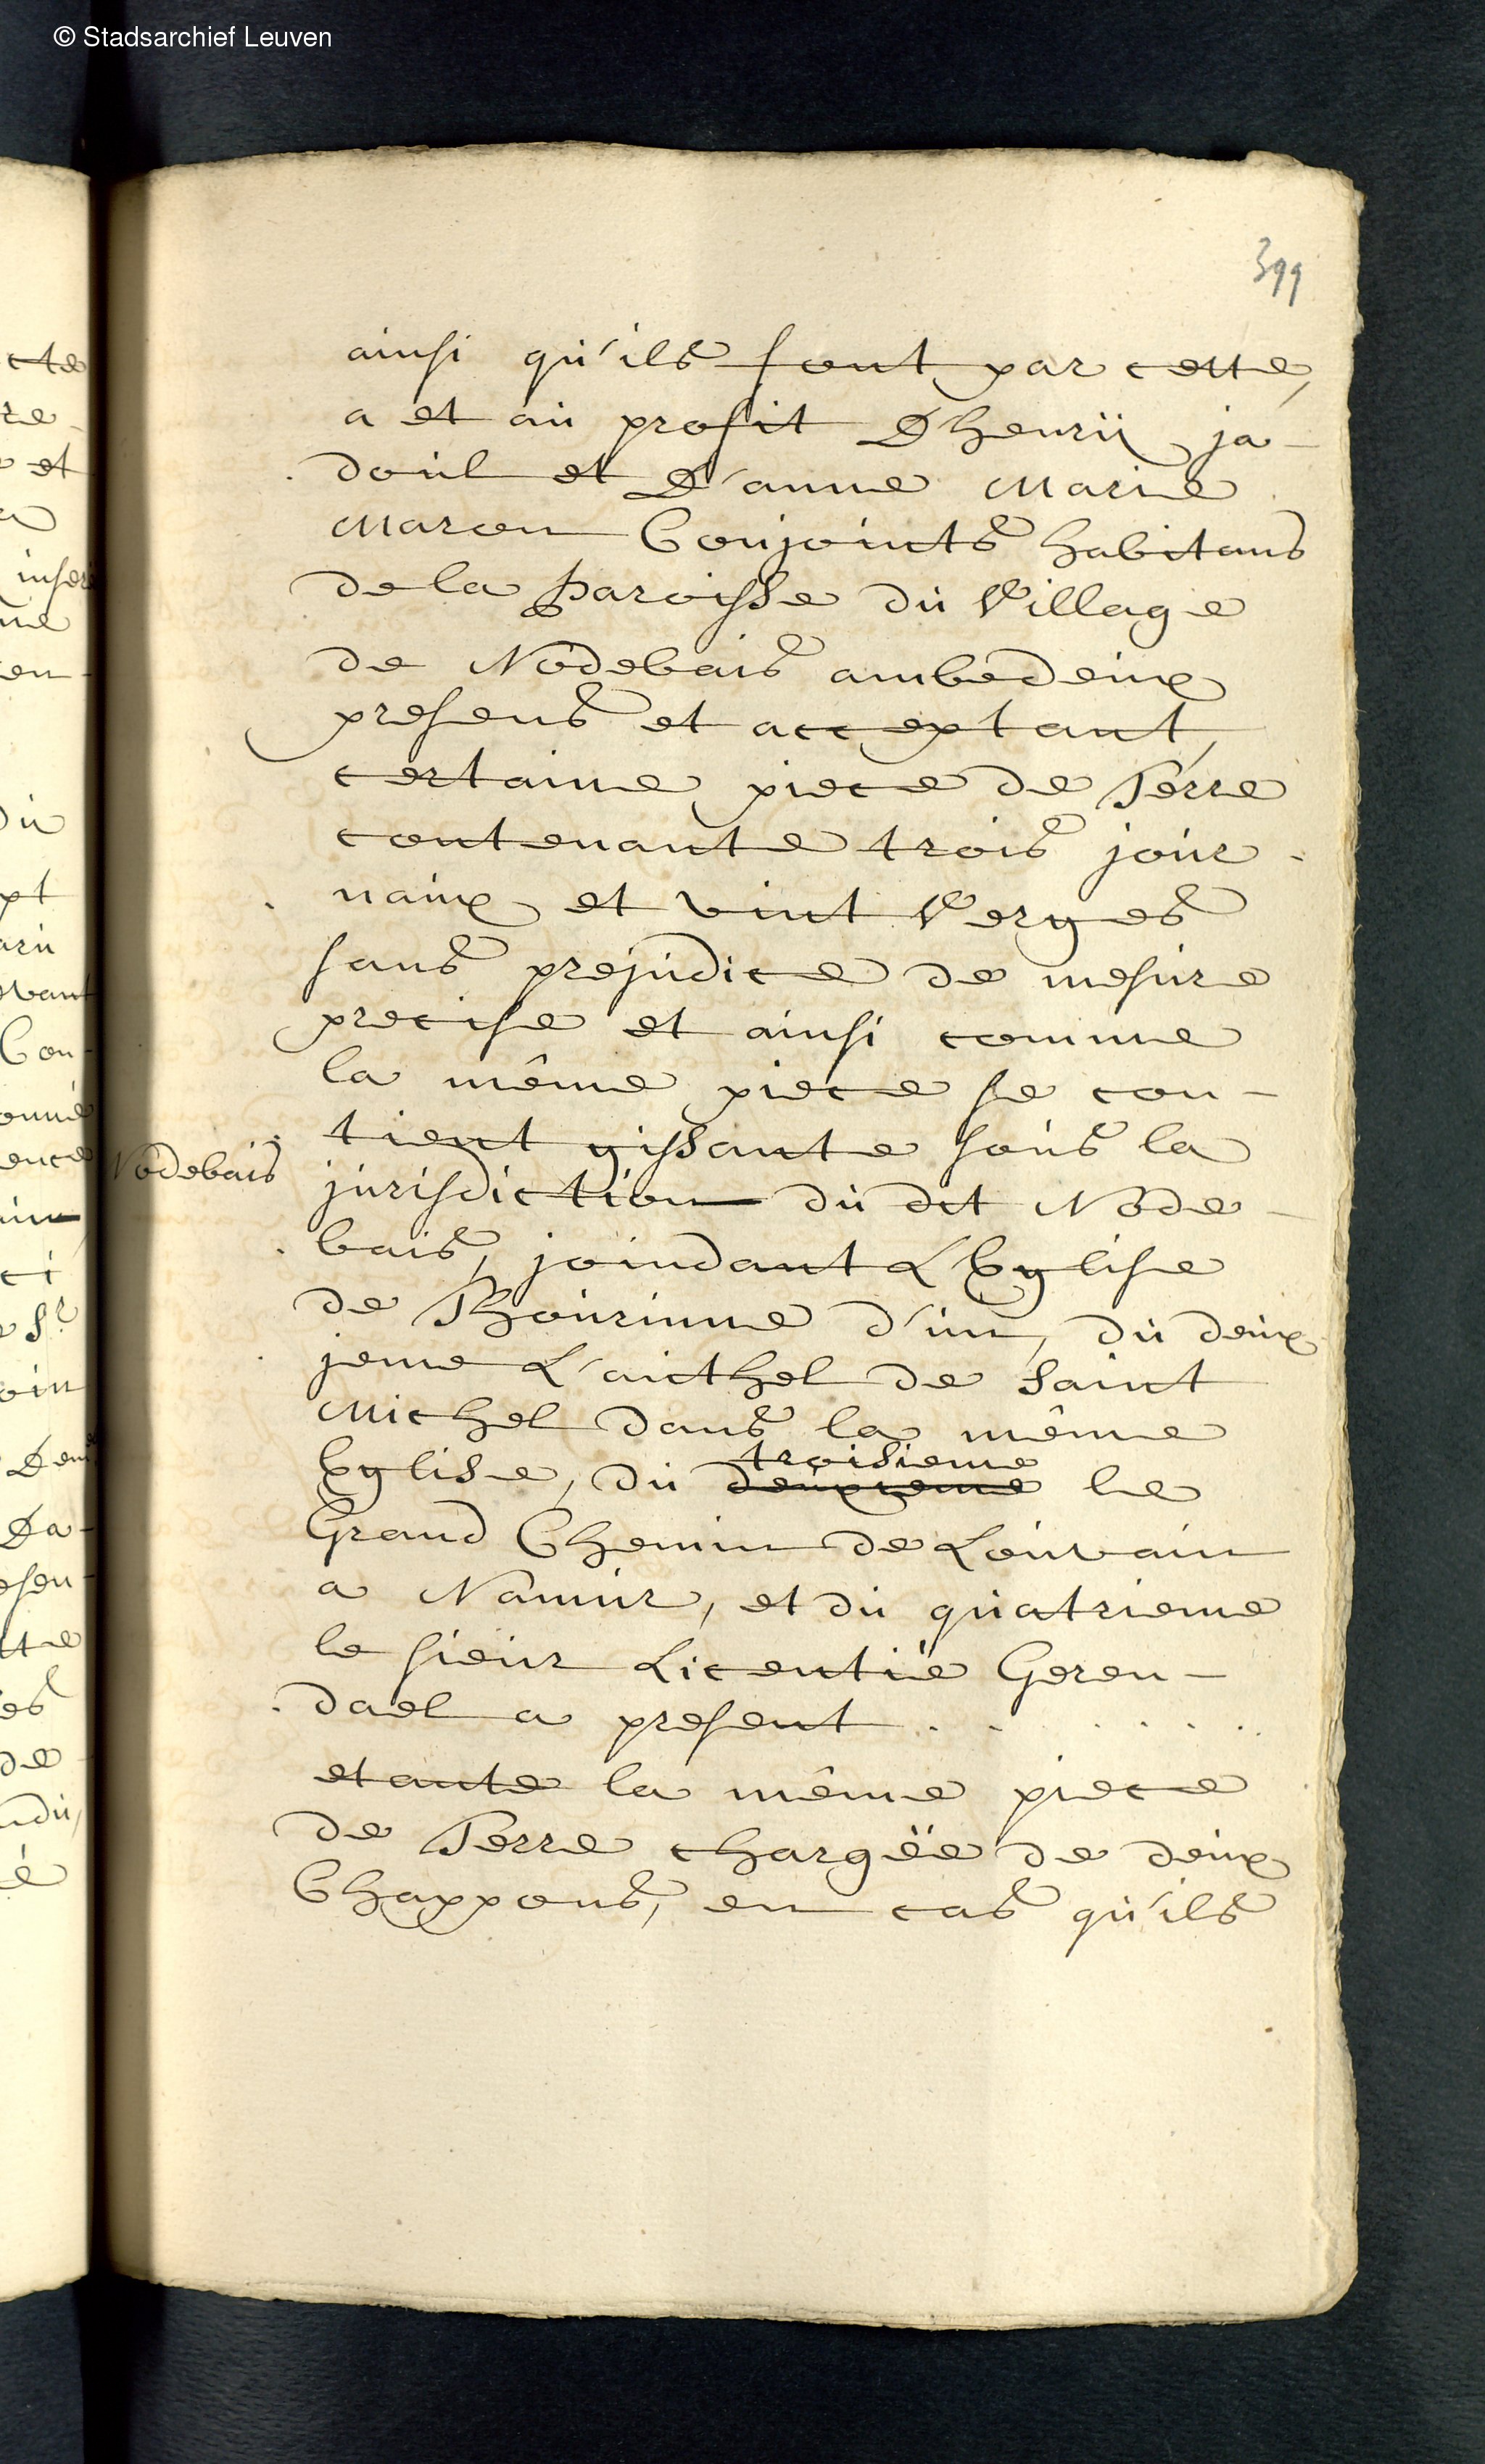 © Stadsarchief Leuven
399
ainsi qu'ils font par cette,
a et au profit D'henrÿ ja-
doul et D'anne Marie
Maron Conjoints habitans
de la paroisse du Village
de Nodebais ambedeux
presens et acceptant,
certaine piece de Terre
contenante trois jour-
naux et vint Verges
sans prejudice de mesure
precise et ainsi comme
la même piece se con-
tient gissante sous la
Nodebais
jurisdiction du dit Node-
bais, joindant L'Eglise
de Thourinne d'un, du deux
jeme L'aucthel de Saint
Michel dans la même
troisieme
Eglise, du deuxieme le
Grand Chemin de Louvain
a Namur, et du quatrieme
le sieur Licentië Geren-
dael a present . . . . . . .
etante la même piece
de Terre chargëe de deux
Chappons, en cas qu'ils